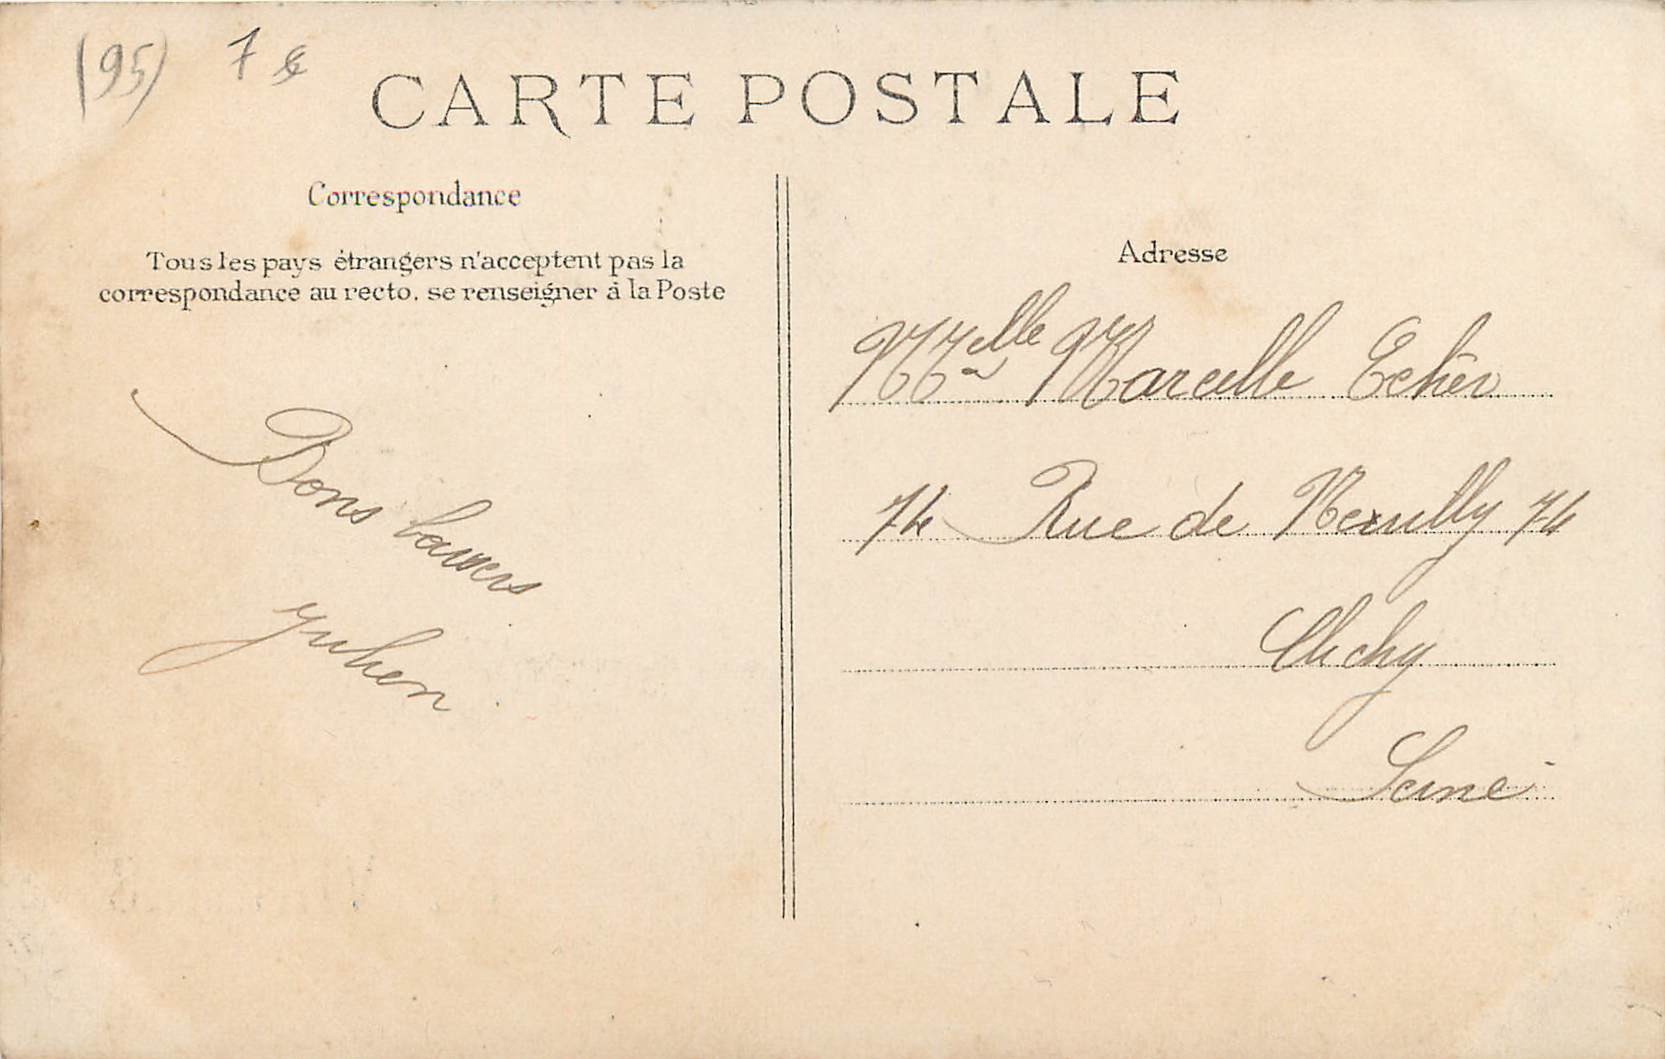 (95) 7 €
CARTE POSTALE
Correspondance
Tous les pays étrangers n'acceptent pas la
correspondance au recto, se renseigner à la Poste
Bons baisers
Julien
Adresse
Melle Marcelle
74 Rue de Neuilly 74
Clichy
Seine